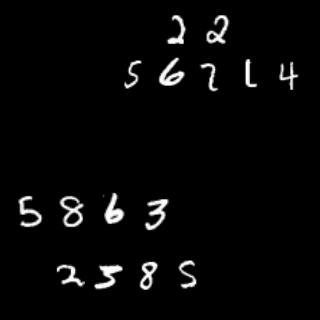 22
56714
5863
2585